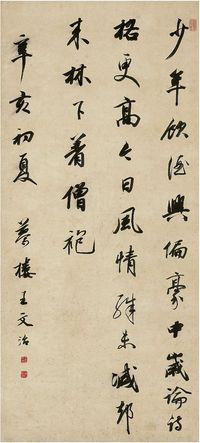 少年飲酒興偏豪中歲論詩
格更高今日風情殊未減却
来林下着僧袍
辛亥初夏
夢樓王文治